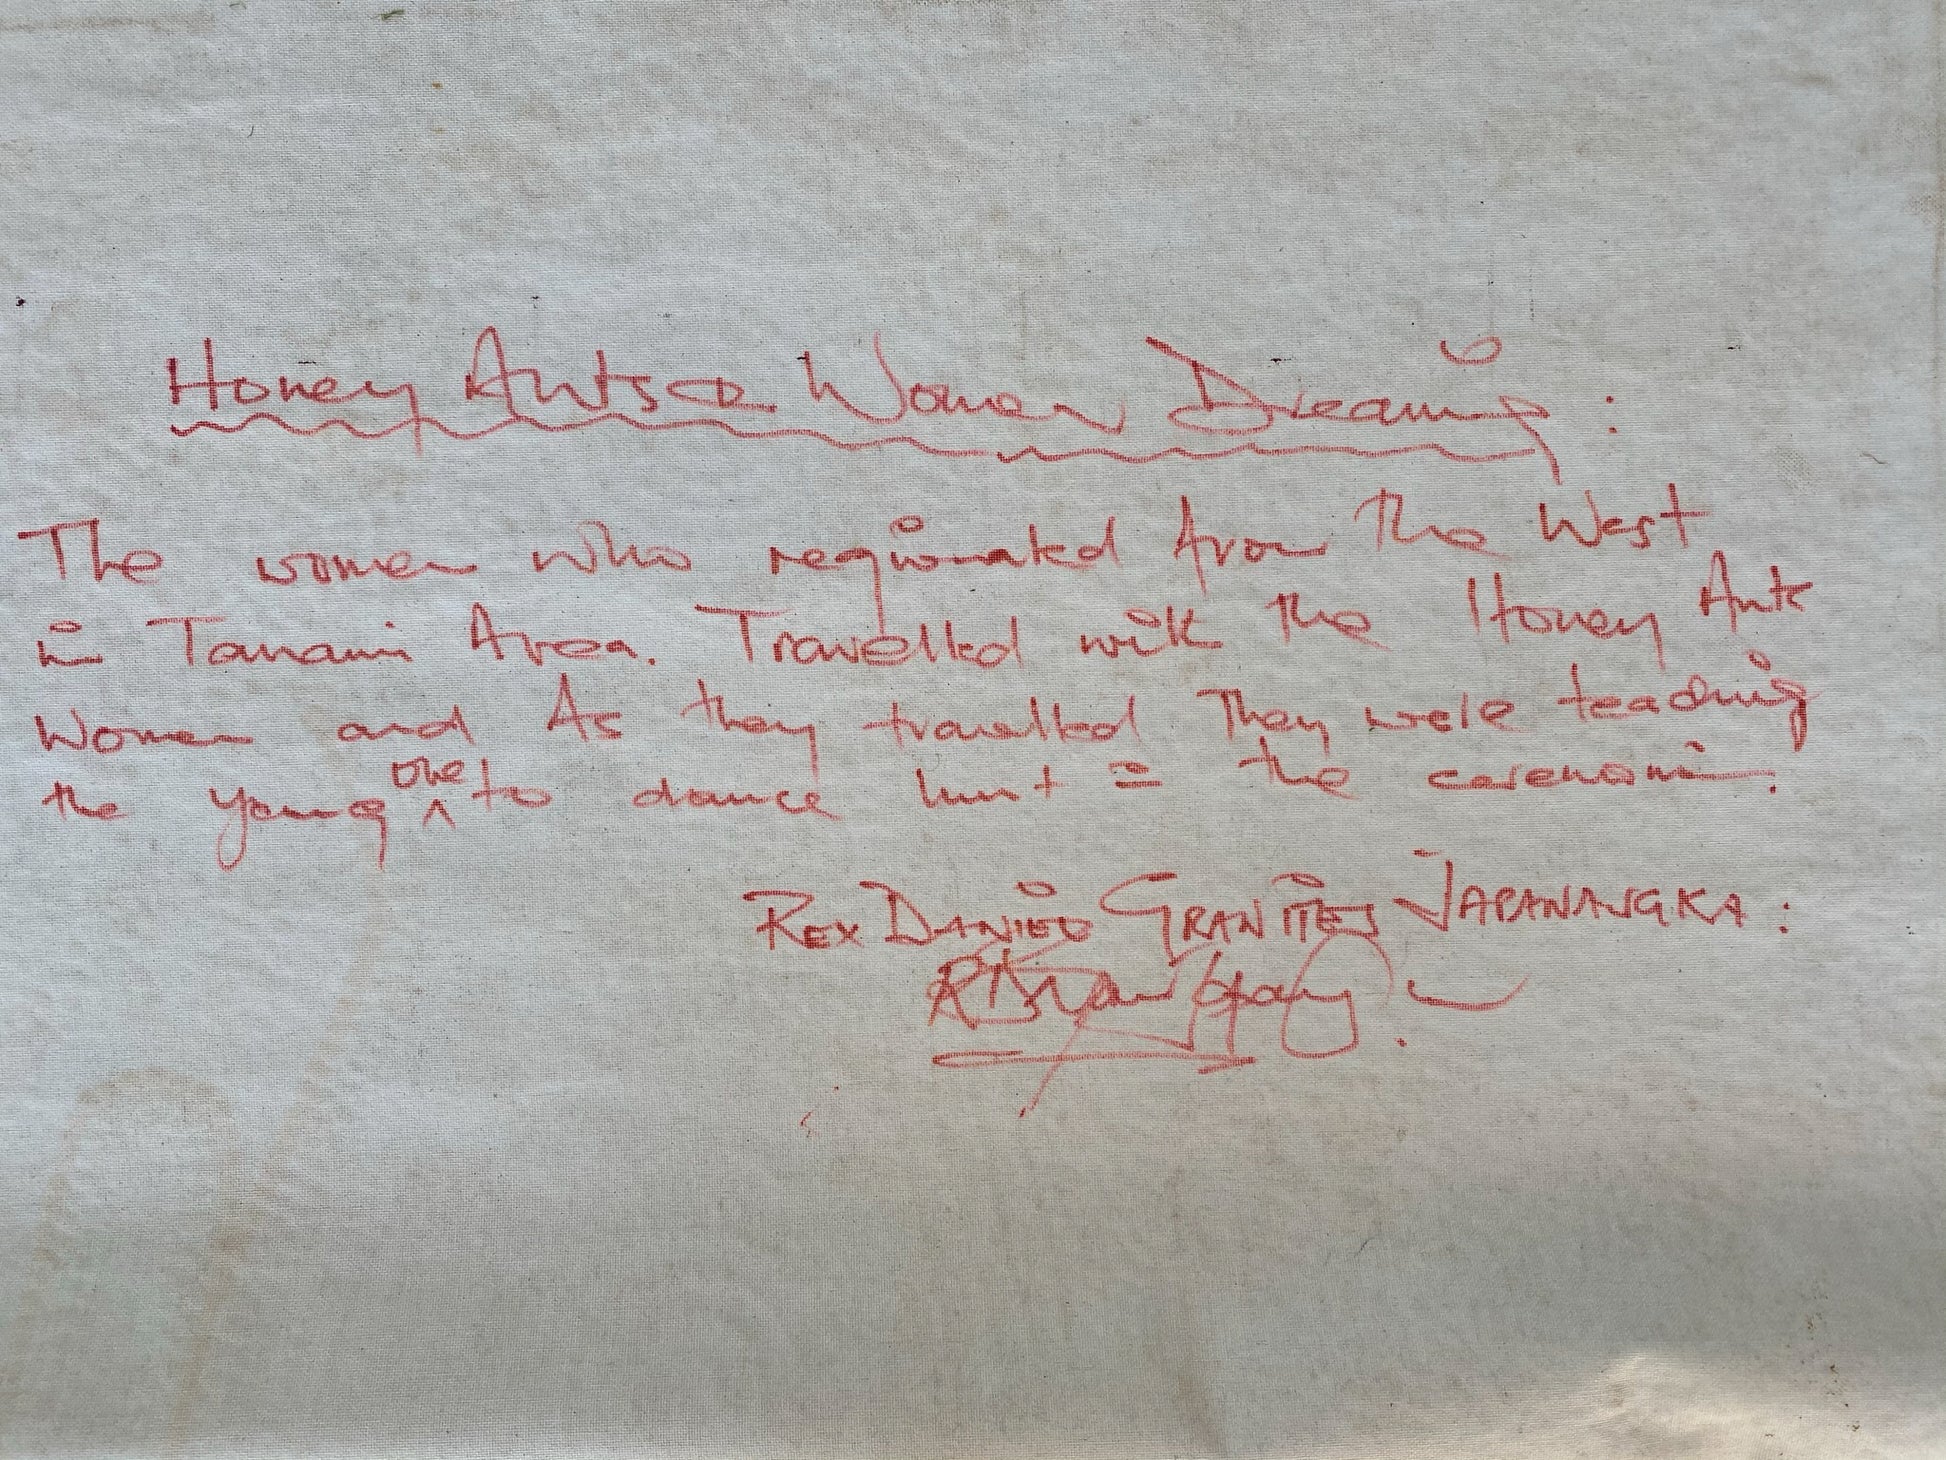 Honey Ants Women Dreaming :
The women who regionated from the West
in Tanami Area. Travelled with the Honey Ants
Women and As they travelled They were teaching
the young one to dance hunt = the ceremoni.
REX DANIEL GRANITES JAPANANGKA :